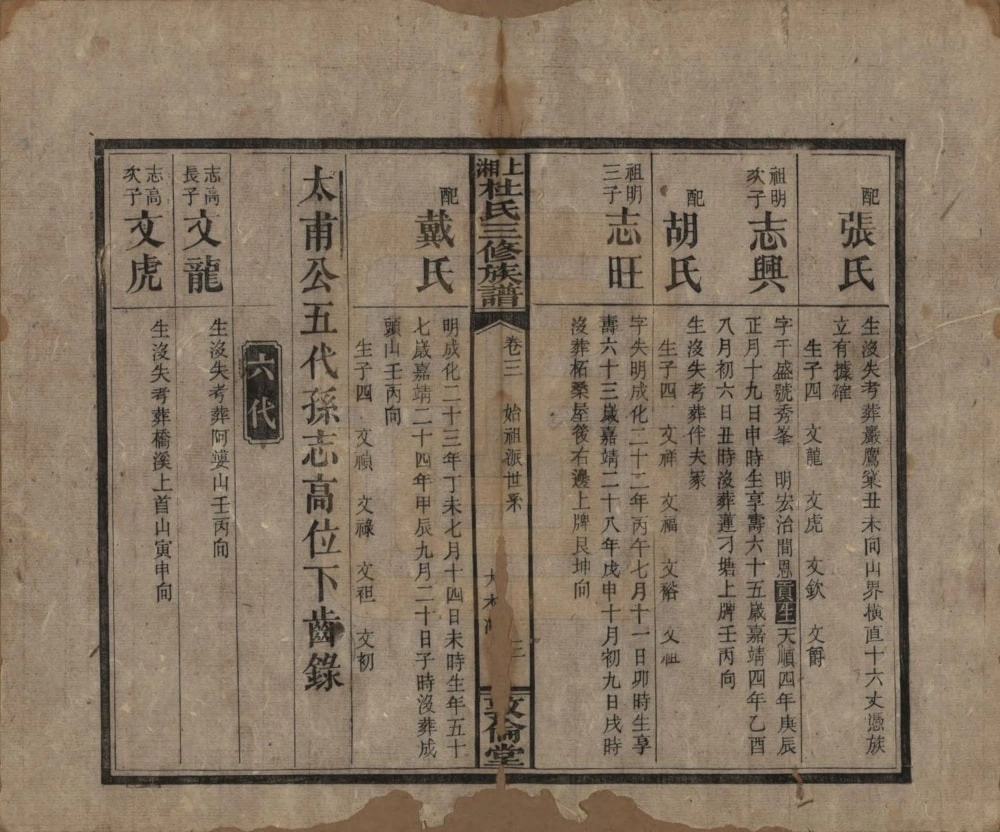 配張氏
生沒失考葬嚴鷹窠丑未向山界橫直十六丈憑族
立有據確
生子四 文龍 文虎 文欽 文爵
祖明次子志興
字千盛號秀峯 明宏治間恩貢生天順四年庚辰
正月十九日申時生享壽六十五歲嘉靖四年乙酉
八月初六日丑時沒葬蓮刁塘上牌壬丙向
配胡氏
生沒失考葬伴夫冢
生子四 文祥 文福 文裕 文祖
祖明三子志旺
字失明成化二十二年丙午七月十一日卯時生享
壽六十三歲嘉靖二十八年戊申十月初九日戌時
沒葬柘桑屋後右邊上牌艮坤向
上湘杜氏三修族譜 卷三 始祖派世系 三 敦倫堂
配戴氏
明成化二十三年丁未七月十四日未時生年五十
七歲嘉靖二十四年甲辰九月二十日子時沒葬成
頭山壬丙向
生子四 文禎 文祿 文袓 文礽
太甫公五代孫志高位下齒錄
六代
志高長子文龍
生沒失考葬阿婆山壬丙向
志高次子文虎
生沒失考葬橋溪上首山寅申向